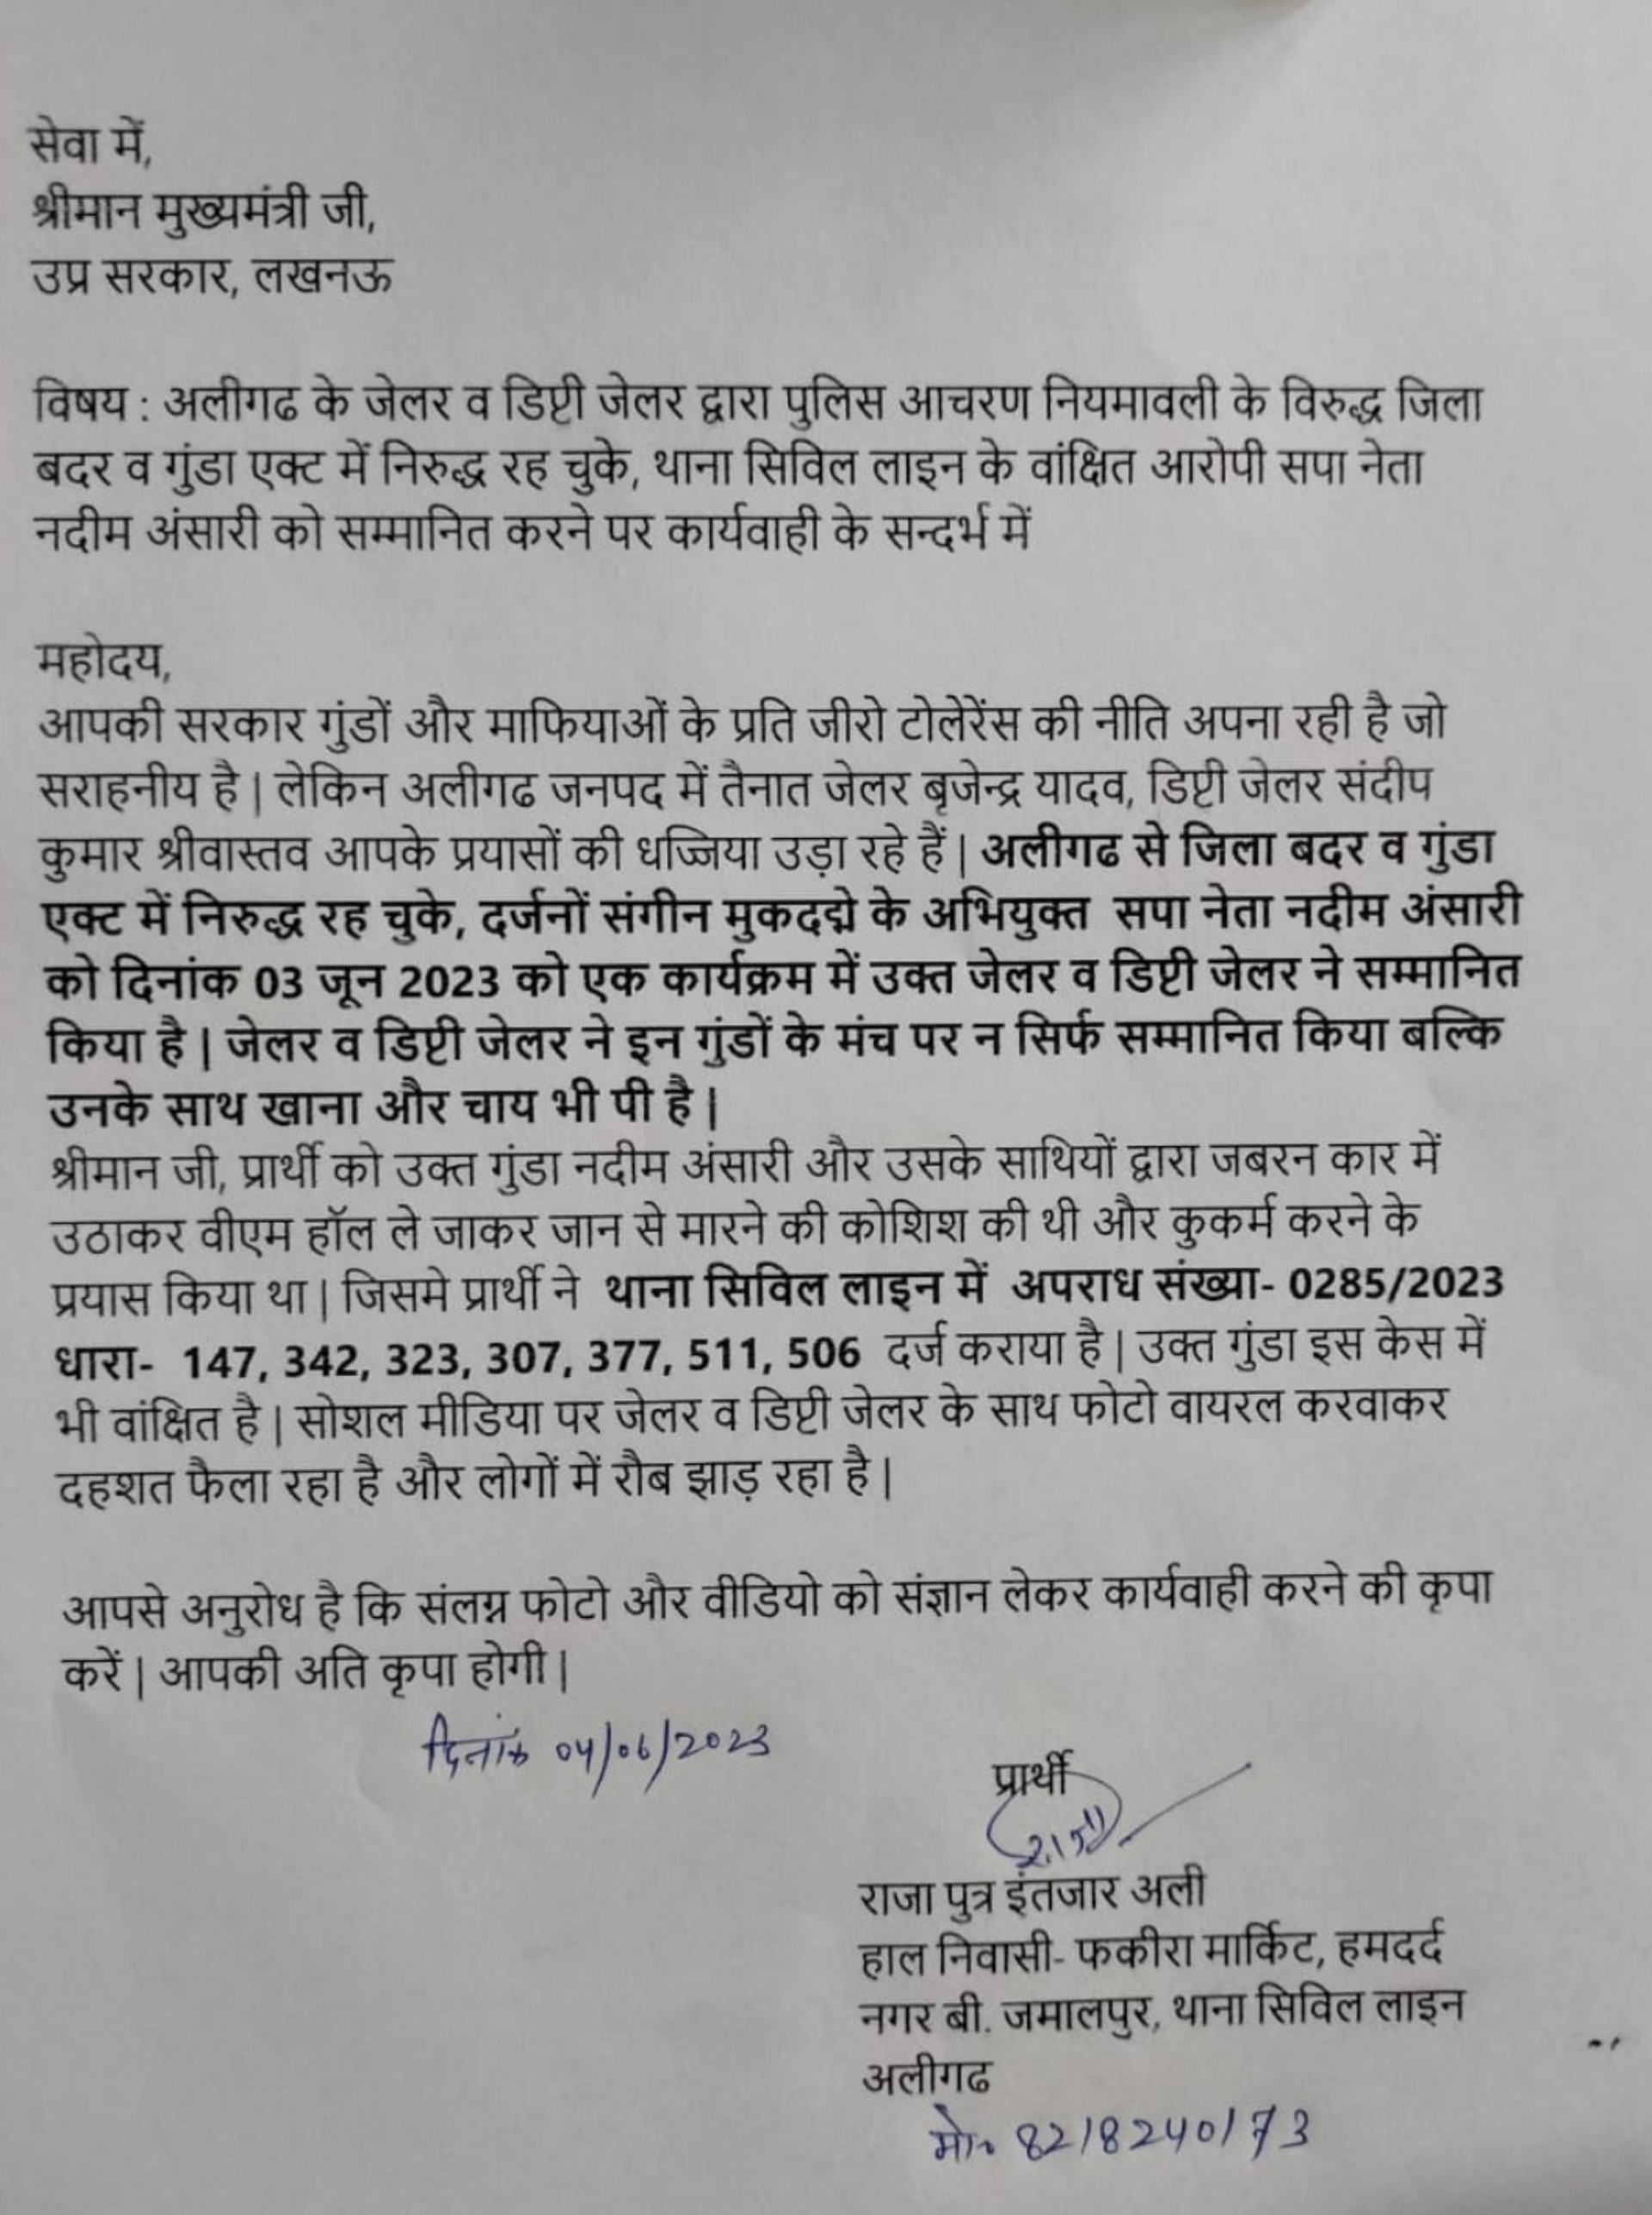 सेवा में,
श्रीमान मुख्यमंत्री जी,
उप्र सरकार, लखनऊ
विषय : अलीगढ के जेलर व डिप्टी जेलर द्वारा पुलिस आचरण नियमावली के विरुद्ध जिला
बदर व गुंडा एक्ट में निरुद्ध रह चुके, थाना सिविल लाइन के वांक्षित आरोपी सपा नेता
नदीम अंसारी को सम्मानित करने पर कार्यवाही के सन्दर्भ में
महोदय,
आपकी सरकार गुंडों और माफियाओं के प्रति जीरो टोलेरेंस की नीति अपना रही है जो
सराहनीय है | लेकिन अलीगढ जनपद में तैनात जेलर बृजेन्द्र यादव, डिप्टी जेलर संदीप
कुमार श्रीवास्तव आपके प्रयासों की धज्जिया उड़ा रहे हैं | अलीगढ से जिला बदर व गुंडा
एक्ट में निरुद्ध रह चुके, दर्जनों संगीन मुकदद्मे के अभियुक्त सपा नेता नदीम अंसारी
को दिनांक 03 जून 2023 को एक कार्यक्रम में उक्त जेलर व डिप्टी जेलर ने सम्मानित
किया है | जेलर व डिप्टी जेलर ने इन गुंडों के मंच पर न सिर्फ सम्मानित किया बल्कि
उनके साथ खाना और चाय भी पी है |
श्रीमान जी, प्रार्थी को उक्त गुंडा नदीम अंसारी और उसके साथियों द्वारा जबरन कार में
उठाकर वीएम हॉल ले जाकर जान से मारने की कोशिश की थी और कुकर्म करने के
प्रयास किया था | जिसमे प्रार्थी ने थाना सिविल लाइन में अपराध संख्या- 0285/2023
धारा- 147, 342, 323, 307, 377, 511, 506 दर्ज कराया है | उक्त गुंडा इस केस में
भी वांक्षित है | सोशल मीडिया पर जेलर व डिप्टी जेलर के साथ फोटो वायरल करवाकर
दहशत फैला रहा है और लोगों में रौब झाड़ रहा है |
आपसे अनुरोध है कि संलग्न फोटो और वीडियो को संज्ञान लेकर कार्यवाही करने की कृपा
करें | आपकी अति कृपा होगी |
दिनांक 04/06/2023
प्रार्थी
राजा
राजा पुत्र इंतजार अली
हाल निवासी- फकीरा मार्किट, हमदर्द
नगर बी. जमालपुर, थाना सिविल लाइन
अलीगढ
मो० 8218240173